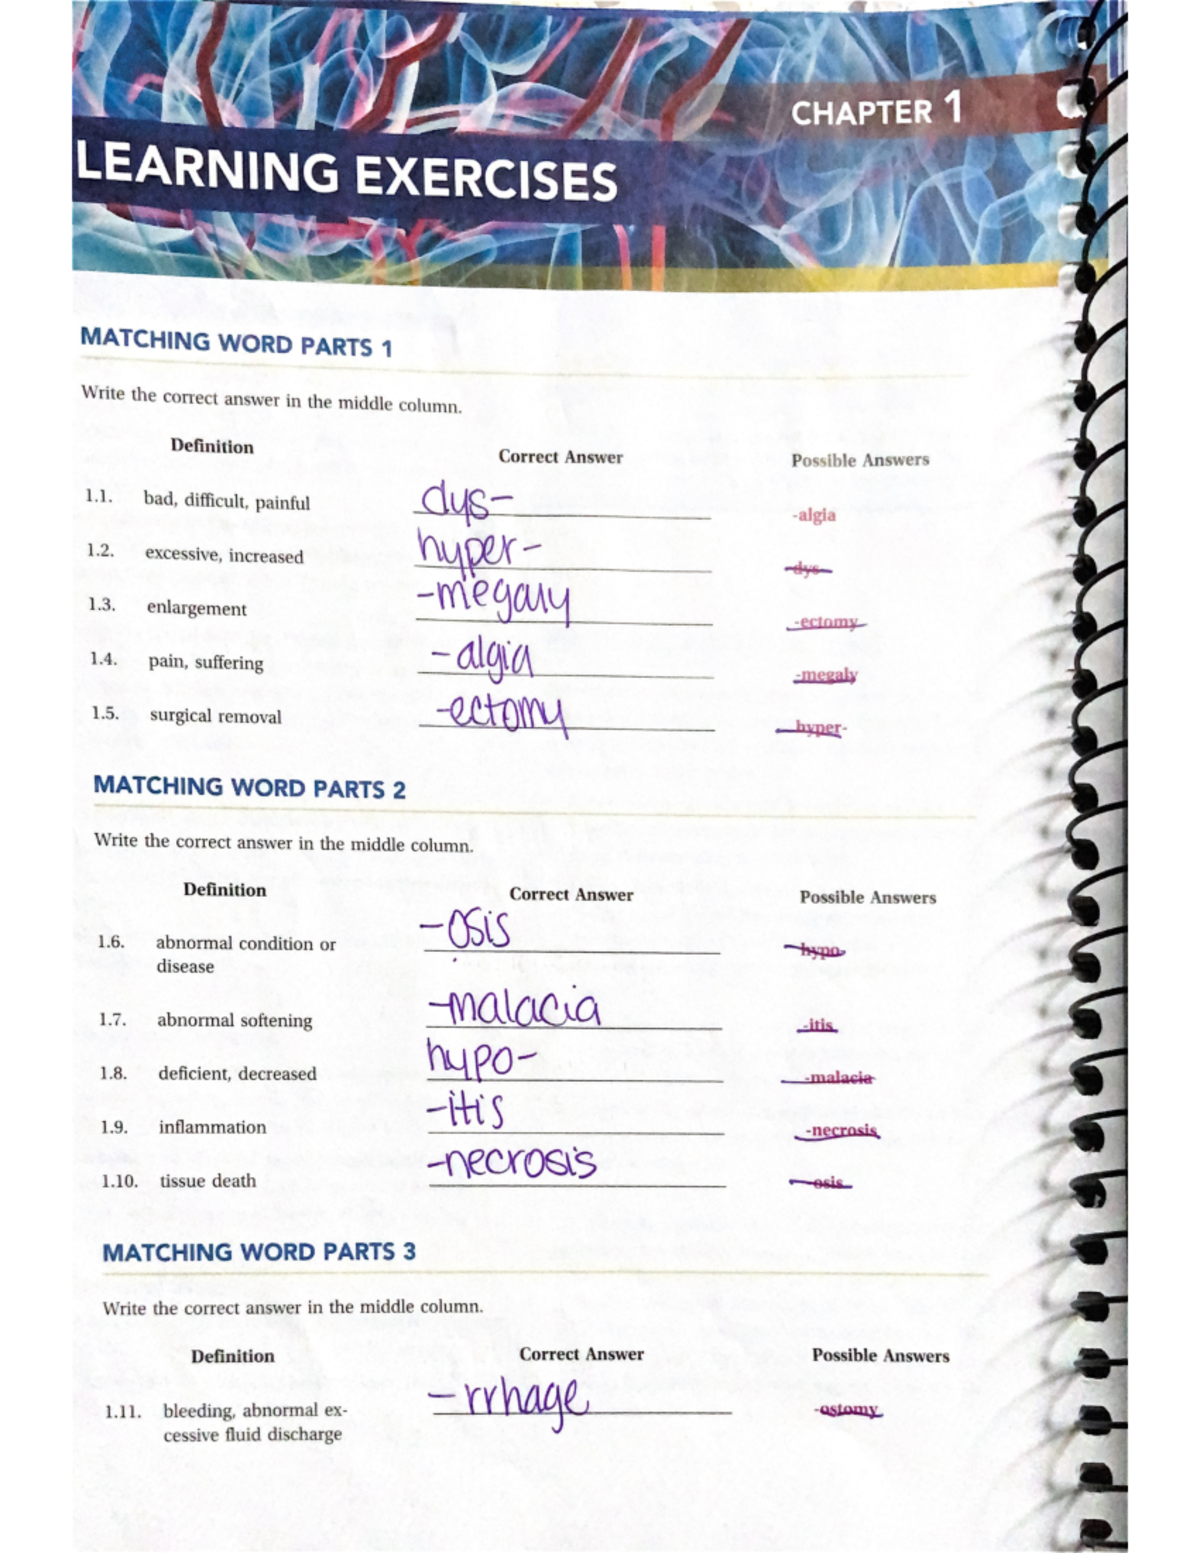 CHAPTER 1
LEARNING EXERCISES
MATCHING WORD PARTS 1
Write the correct answer in the middle column.
Definition Correct Answer Possible Answers
1.1. bad, difficult, painful dys- -algia
1.2. excessive, increased hyper- dys-
1.3. enlargement -megaly -ectomy
1.4. pain, suffering -algia -megaly
1.5. surgical removal -ectomy hyper-
MATCHING WORD PARTS 2
Write the correct answer in the middle column.
Definition Correct Answer Possible Answers
1.6. abnormal condition or -osis hypo-
disease
1.7. abnormal softening -malacia -itis
1.8. deficient, decreased hypo- -malacia
1.9. inflammation -itis -necrosis
1.10. tissue death -necrosis -osis
MATCHING WORD PARTS 3
Write the correct answer in the middle column.
Definition Correct Answer Possible Answers
1.11. bleeding, abnormal ex- -rrhage -ostomy
cessive fluid discharge